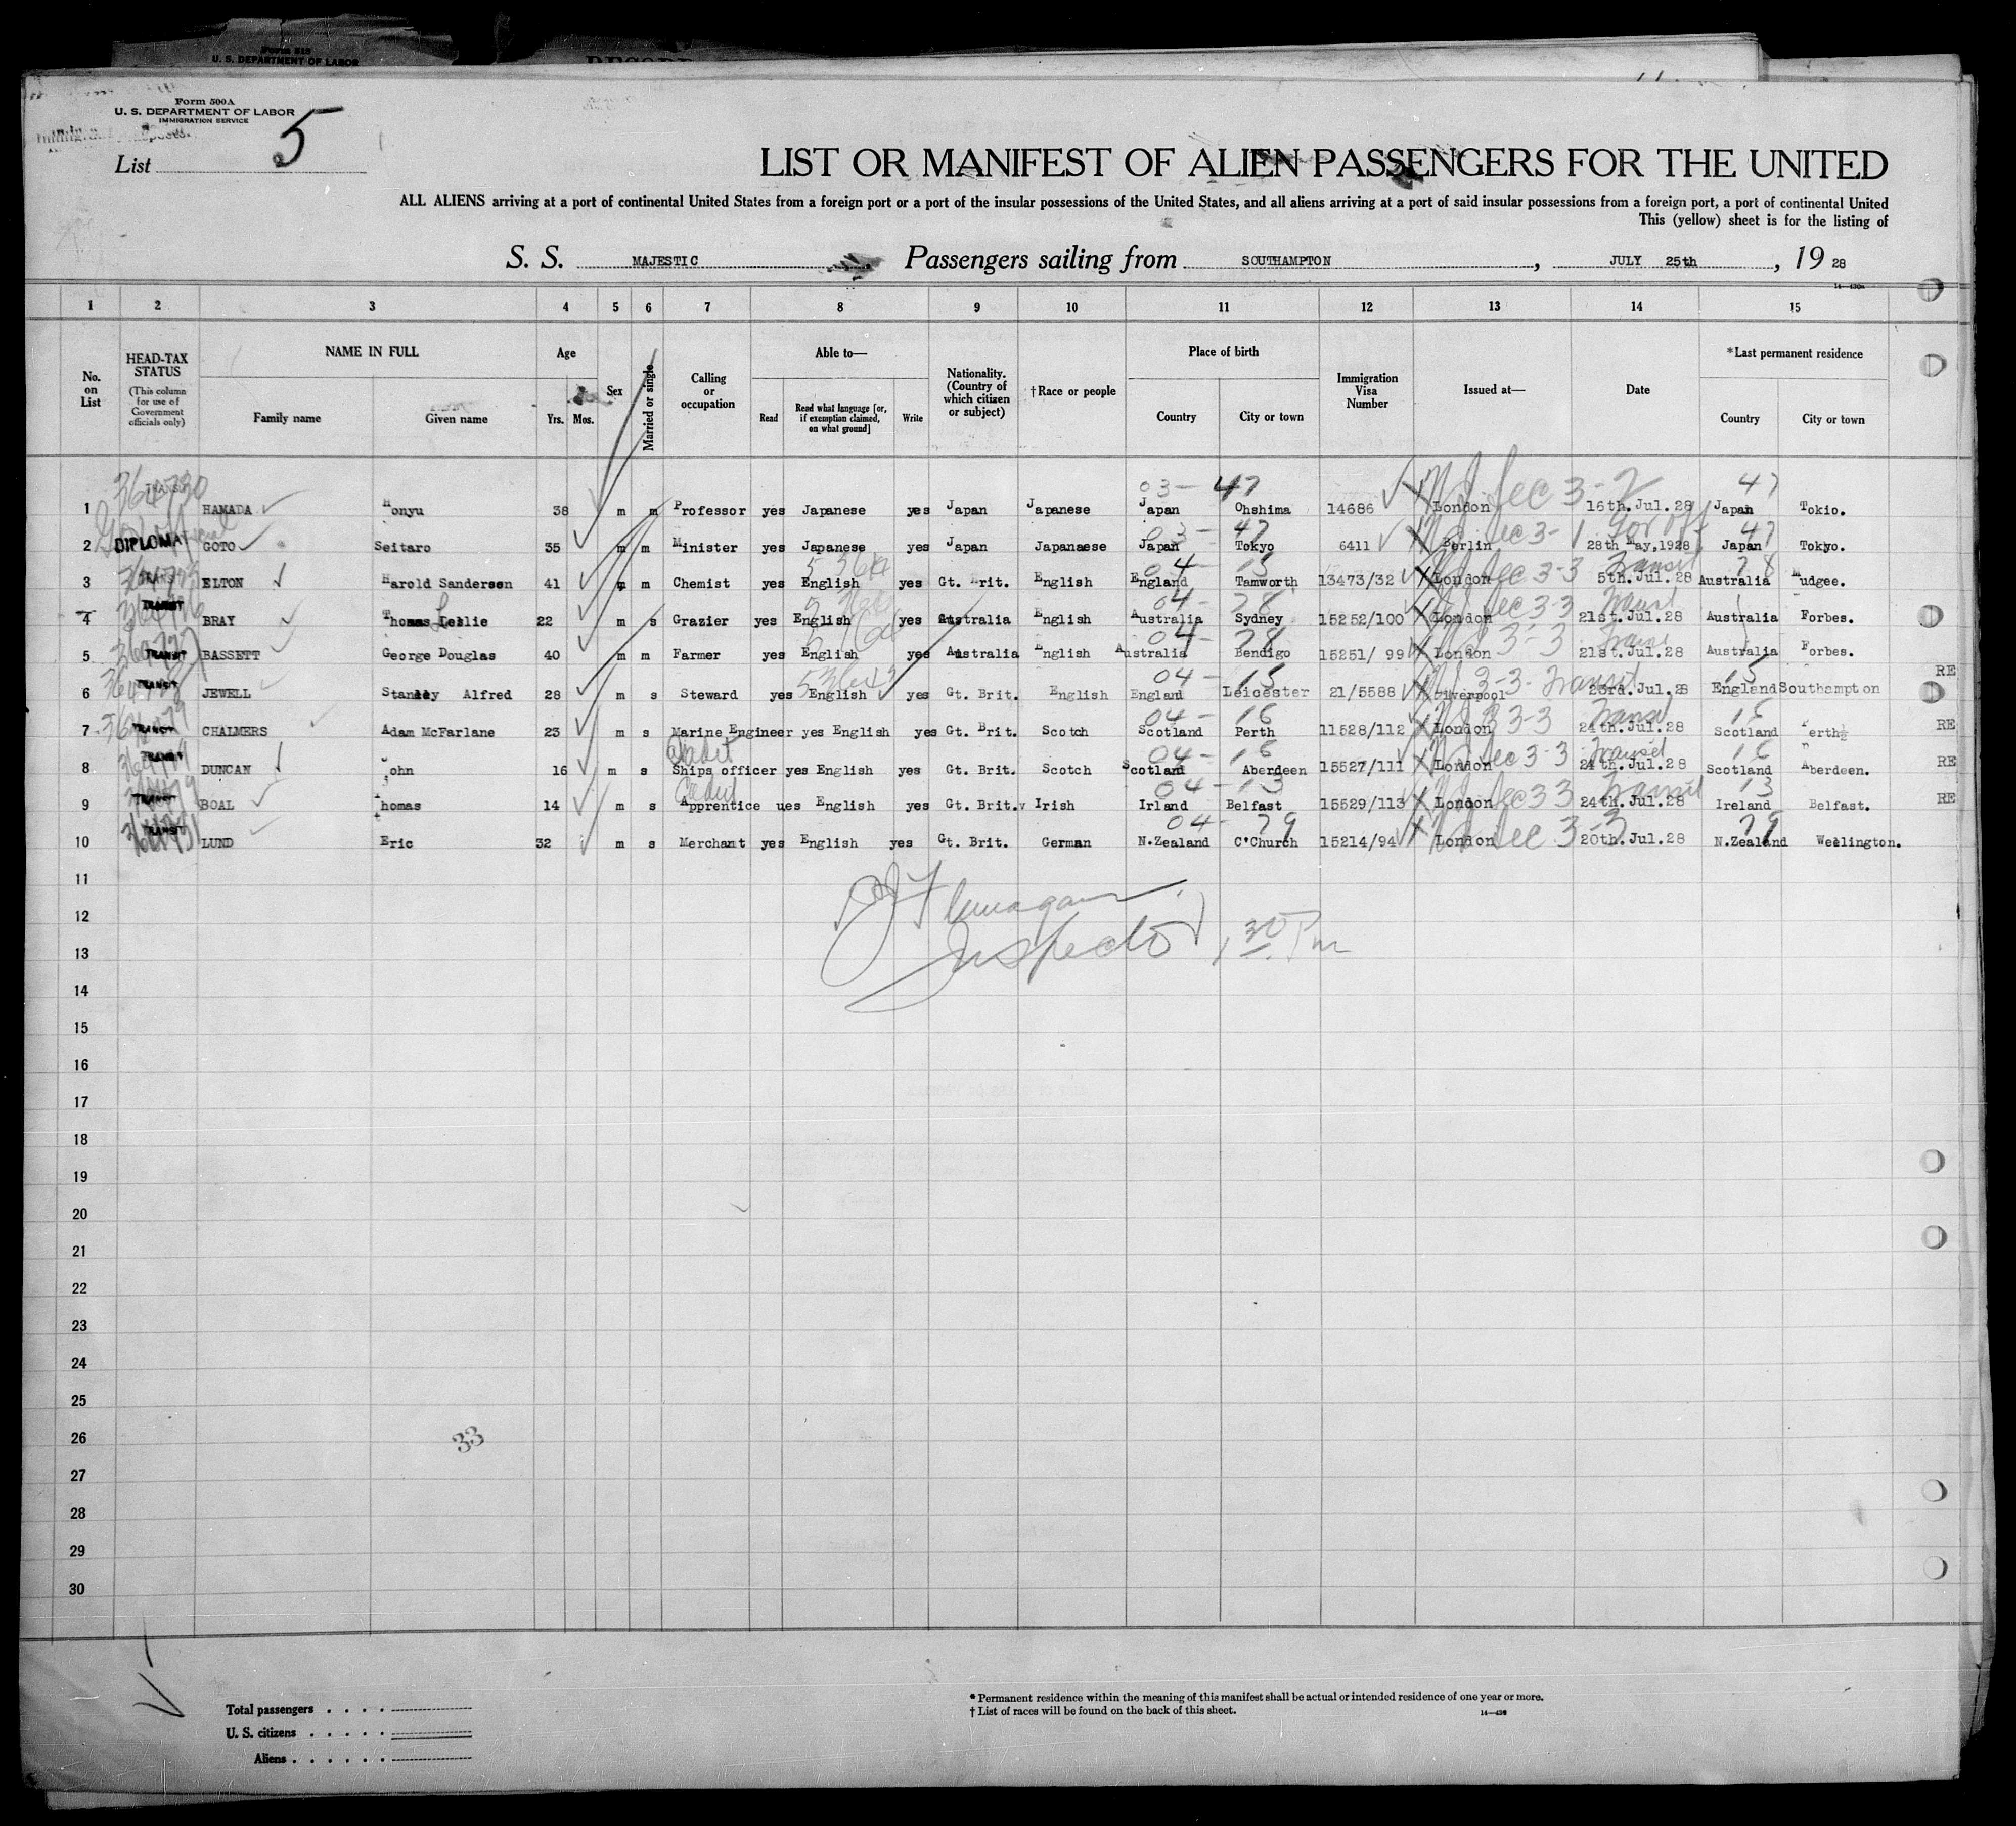 Form 500A
U. S. DEPARTMENT OF LABOR
IMMIGRATION SERVICE
List 5
LIST OR MANIFEST OF ALIEN PASSENGERS FOR THE UNITED
ALL ALIENS arriving at a port of continental United States from a foreign port or a port of the insular possessions of the United States, and all aliens arriving at a port of said insular possessions from a foreign port, a port of continental United
This (yellow) sheet is for the listing of
S. S. MAJESTIC Passengers sailing from SOUTHAMPTON, JULY 25th, 19 28
1 2 3 4 5 6 7 8 9 10 11 12 13 14 15
No. on List
HEAD-TAX STATUS (This column for use of Government officials only)
NAME IN FULL Family name Given name
Age Yrs. Mos.
Sex
Married or single
Calling or occupation
Able to— Read Read what language [or, if exemption claimed, on what ground] Write
Nationality. (Country of which citizen or subject)
†Race or people
Place of birth Country City or town
Immigration Visa Number
Issued at—
Date
*Last permanent residence Country City or town
1 HAMADA Honyu 38 m m Professor yes Japanese yes Japan Japanese Japan Ohshima 14686 London 16th.Jul.28 Japan Tokio.
2 DIPLOMAT GOTO Seitaro 35 m m Minister yes Japanese yes Japan Japanaese Japan Tokyo 6411 Berlin 28th May,1928 Japan Tokyo.
3 ELTON Harold Sanderson 41 m m Chemist yes English yes Gt. Brit. English England Tamworth 13473/32 London 5th.Jul.28 Australia Mudgee.
4 TRANSIT BRAY Thomas Leslie 22 m s Grazier yes English yes Australia English Australia Sydney 15252/100 London 21st.Jul.28 Australia Forbes.
5 TRANSIT BASSETT George Douglas 40 m m Farmer yes English yes Australia English Australia Bendigo 15251/ 99 London 21st.Jul.28 Australia Forbes.
6 TRANSIT JEWELL Stanley Alfred 28 m s Steward yes English yes Gt. Brit. English England Leicester 21/5588 Liverpool 23rd.Jul.28 England Southampton RE
7 TRANSIT CHALMERS Adam McFarlane 23 m s Marine Engineer yes English yes Gt. Brit. Scotch Scotland Perth 11528/112 London 24th.Jul.28 Scotland Perth RE
8 TRANSIT DUNCAN John 16 m s Ships officer Cadet yes English yes Gt. Brit. Scotch Scotland Aberdeen 15527/111 London 24th.Jul.28 Scotland Aberdeen. RE
9 TRANSIT BOAL Thomas 14 m s Apprentice Cadet ues English yes Gt. Brit.v Irish Irland Belfast 15529/113 London 24th.Jul.28 Ireland Belfast. RE
10 TRANSIT LUND Eric 32 m s Merchant yes English yes Gt. Brit. German N.Zealand C'Church 15214/94 London 20th.Jul.28 N.Zealand Wellington.
11
Flanagan
12
Inspector 1 30 Pm
13
14
15
16
17
18
19
20
21
22
23
24
25
26
33
27
28
29
30
Total passengers
U. S. citizens
Aliens
* Permanent residence within the meaning of this manifest shall be actual or intended residence of one year or more.
† List of races will be found on the back of this sheet.
14—430